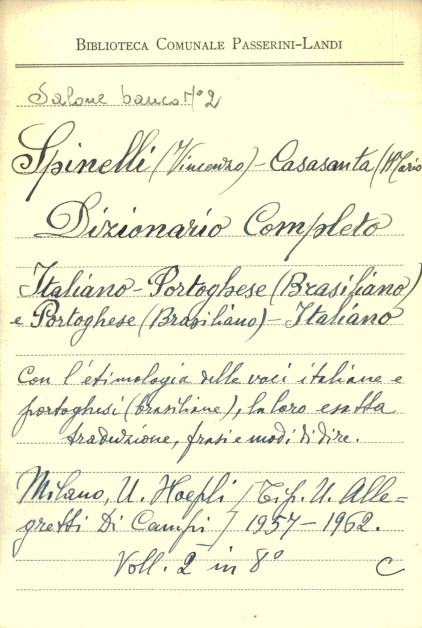 BIBLIOTECA COMUNALE PASSERINI-LANDI
Salone banco N° 2
Spinelli (Vincenzo) - Casasanta (Mario
Dizionario Completo
Italiano - Portoghese (Brasiliano)
e Portoghese (Brasiliano) - Italiano
Con l'etimologia delle voci italiane e
portoghesi (brasiliane), la loro esatta
traduzione, frasi e modi di dire.
Milano, U. Hoepli / Tip. U. Alle=
gretti Di Campi / 1957 - 1962.
Voll. 2 in 8°
C